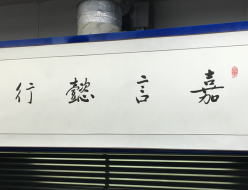 嘉言懿行